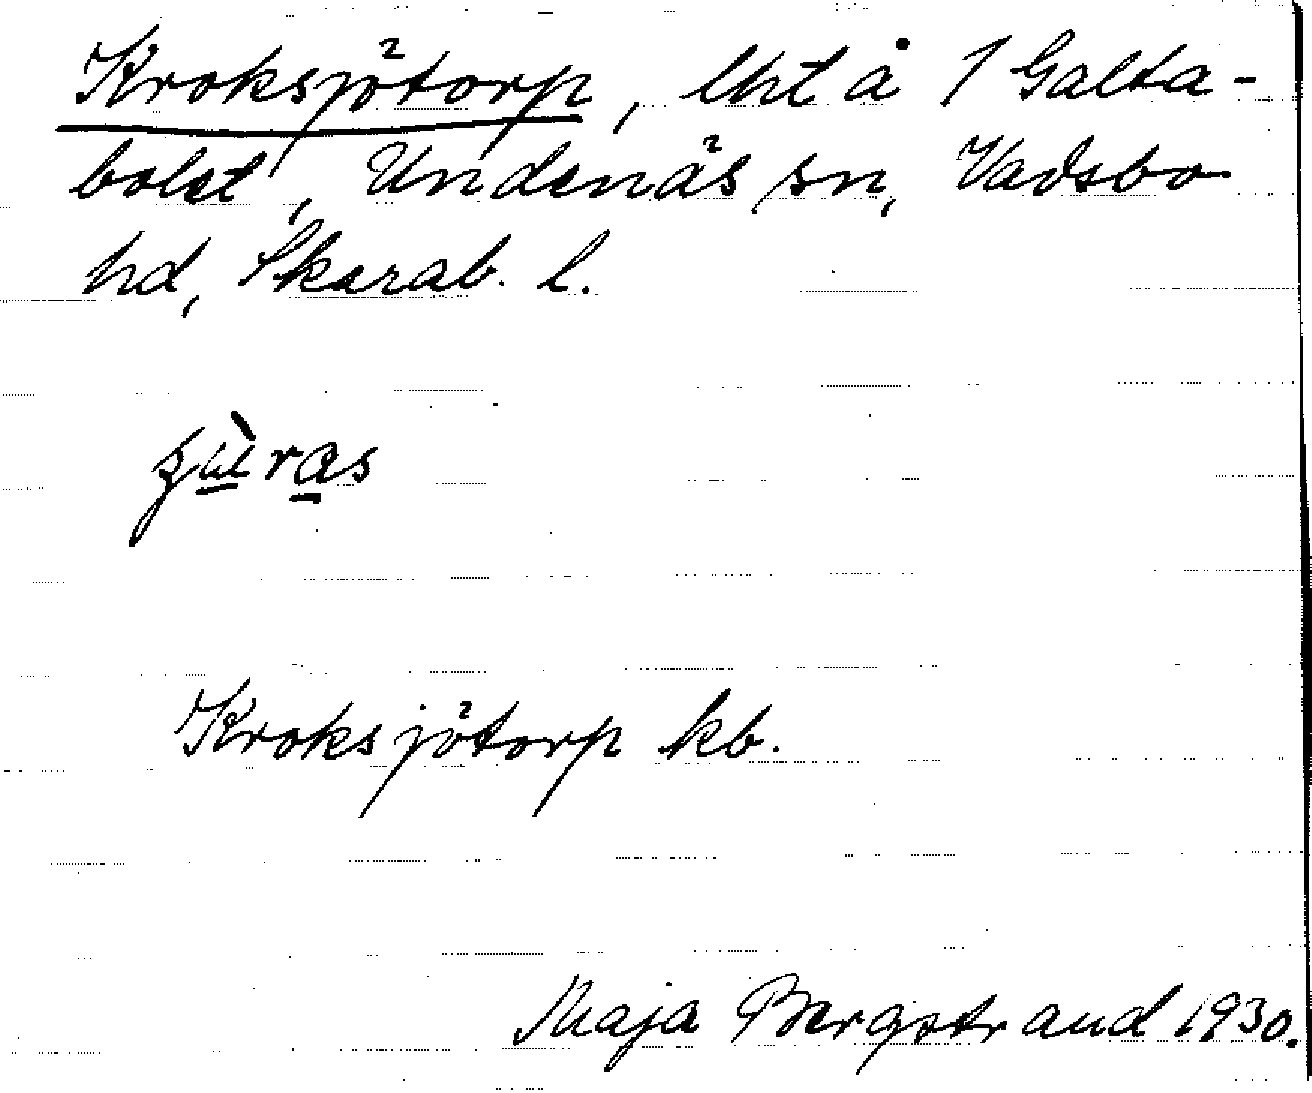 Kroksjötorp, lht å 1 Galta-
bolet, Undenäs sn, Vadsbo
hd, Skarab. l.
Kroksjötorp kb.
Maja Bergstrand 1930.